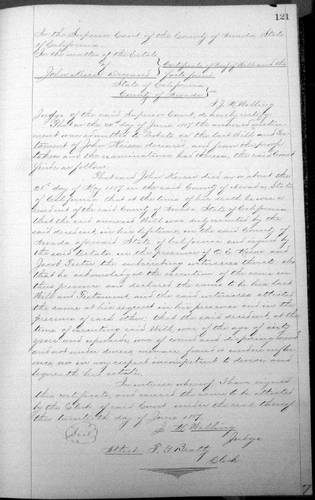 121
In the Superior Court of the County of Nevada State
of California
In the matter of the Estate
of
John Deceased
Certificate of Proof of Will and the
facts found
State of California
County of Nevada
I J. M. Walling
Judge of the said Superior Court, do hereby certify
That on the day of June 1887 the annexed instru-
ment was admitted to Probate as the last Will and Tes-
tament of John deceased, and from the proofs
taken and the examination had therein, the said Court
finds as follows:
That said John died on or about the
day of May 1887 in the said County of Nevada State
of California that at the time of his death he was a
resident of the said County of Nevada State of California
that the said annexed Will was duly executed by the
said decedent in his lifetime, in the said County of
Nevada State of California and signed by
the said testator in the presence of and
the subscribing witnesses thereto also
that he acknowledged the execution of the same in
their presence and declared the same to be his last
Will and Testament and the said witnesses attested
the same at his request in his presence and in the
presence of each other; that the said decedent at the
time of executing said Will, was of the age of sixty
years and upwards, was of sound and disposing mind
and not under duress menace fraud or undue influ-
ence, nor in any respect incompetent to devise and
bequeath his estate.
In witness whereof, I have signed
this certificate, and caused the same to be attested
by the Clerk of said Court under the seal thereof
this day of June 1887
Seal
J. M. Walling
Judge
Attest F. G. Beatty
Clerk